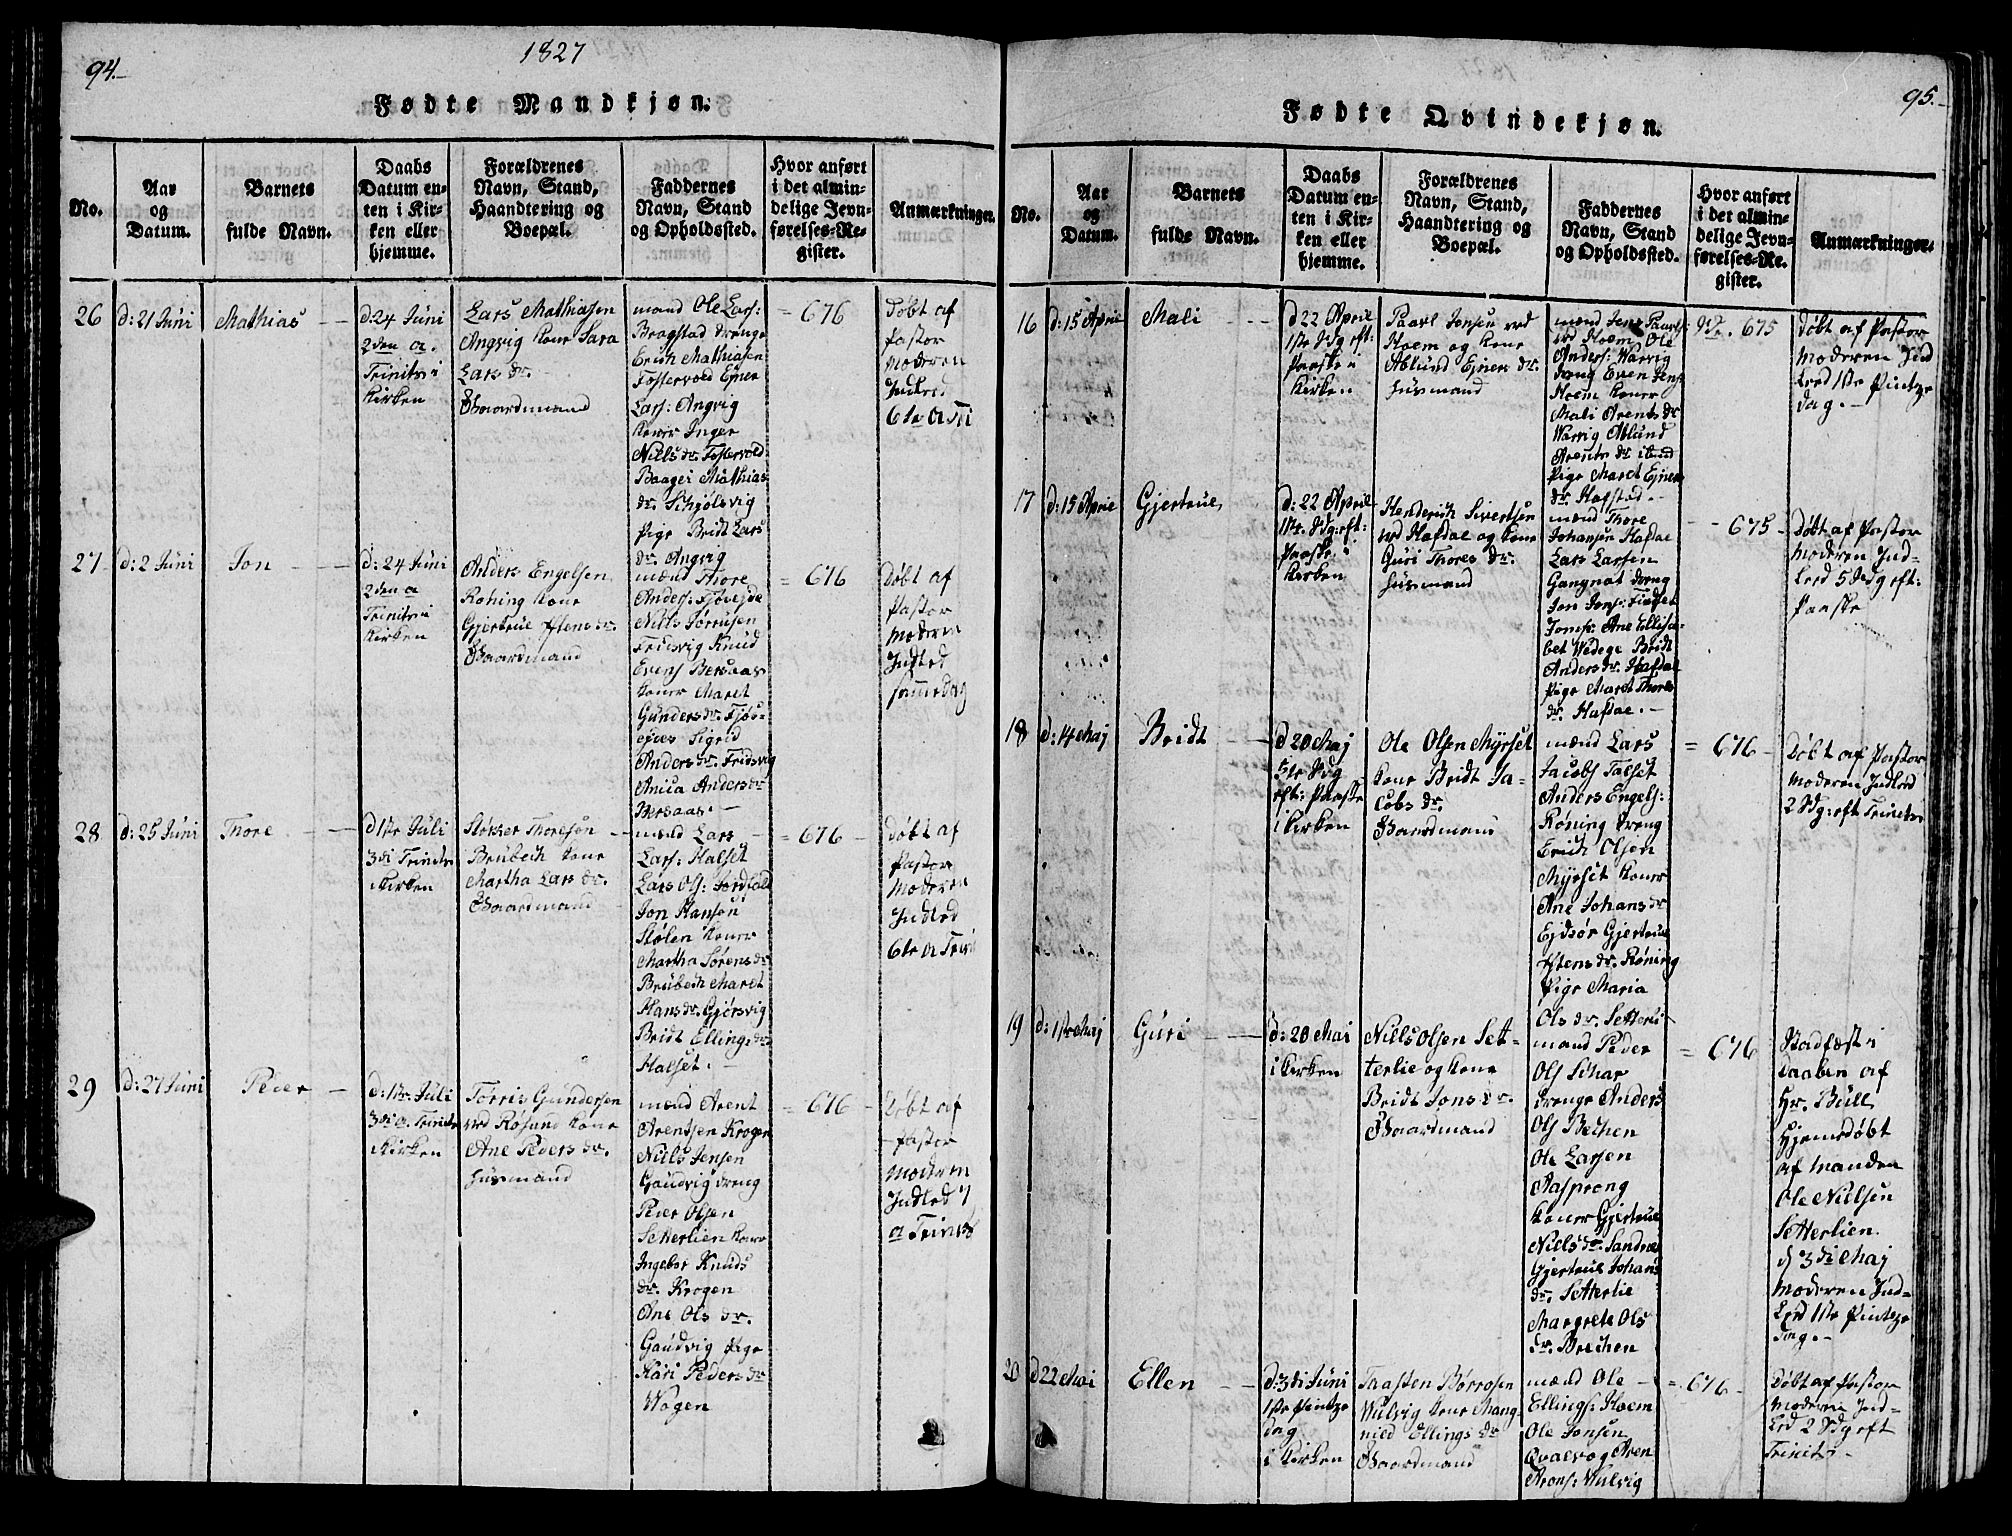 94.
1827
Fødte Mandkjøn.
No.
Aar
og
Datum.
Barnets
fulde Navn.
Daabs
Datum en-
ten i Kir-
ken eller
hjemme.
Forældrenes
Navn, Stand,
Haandtering og
Boepæl.
Faddernes
Navn, Stand
og Opholdssted.
Hvor anført
i det almin-
delige Jevn-
førelses-Re-
gister.
Anmærkninger.
26
d: 21 Juni
Mathias
d: 24 Juni
2den a.
Trinit: i
Kirken
Lars Mathiasen
Angvig Kone Sara
Lars dr.
Gaardmand
mænd Ole Lars:
Bragstad drenge
Erich Mathiasen
Fostervold Ejner
Lars: Angvig
Koner Inger
Niels dr. Fostervold
Baagei Mathias
dr. Schjølsvig
Pige Bridt Lars
dr. Angvig
= 676
Døbt af
Pastor
Moderen
Indled
6te a Tri
27
d: 2 Juni
Jon
d: 24 Juni
2den a
Trinit: i
Kirken
Anders Engelsen
Røhing Kone
Gjertrue Istens dr.
Gaardmand
mænd Thore
Anders:
Niels Sørrusen
Fridsvig Knud
Evens Bersaas
Koner Maret
Gunders dr.
Sigrid
Anders dr. Fridsvig
Anica Anders dr
Bersaas.
= 676
Døbt af
Pastor
Moderen
Indled
samme dag
28
d: 25 Juni
Thore
d 1ste Juli
3di Trinit:
i Kirken
Støkker Thoresøn
Brubech Kone
Martha Lars dr.
Gaardmand
mænd Lars
Lars: Halset
Lars Ols: Jordfald
Jon Hansen
Stølen Koner
Martha Sørens dr
Brubech Maret
Hans dr. Gjørsvig
Bridt Ellings dr
Halset.
= 676
Døbt af
Pastor
Moderen
Indled
6te a Trin
29
d: 27 Juni
Peder
d: 1ste Juli
3di a. Trinit:
i Kirken
Torris Gundersen
ved Røsund Kone
Ane Peders dr.
Husmand
mænd Arent
Arentsen Krogen
Niels Jensen
Gaudvig dreng
Peder Olsen
Setterlien Koner
Ingebor Knuds
dr. Krogen
Ane Ols dr.
Gaudvig Pige
Kari Peders dr
Wagen
= 676
Døbt af
Pastor
Moderen
Indled 7
a Trinit:
95.
Fødte Qvindekjøn.
No.
Aar
og
Datum.
Barnets
fulde Navn.
Daabs
Datum en-
ten i Kir-
ken eller
hjemme.
Forældrenes
Navn, Stand,
Haandtering og
Boepæl.
Faddernes
Navn, Stand
og Opholdssted.
Hvor anført
i det almin-
delige Jevn-
førelses-Re-
gister.
Anmærkninger.
16
d: 15 Aprie
Mali
d 22 Aprie
1ste Sdg eft:
Paaske i
Kirken
Paavl Jensen ved
Hoem og Kone
Ablund Ejners dr.
Husmand
mænd Jens Paavls:
ved Hoem, Ole
Anders: Warvig
dreng Even Jens:
Hoem Koner
Mali Arents dr
Warvig Ablund
Arents dr ibind
Pige Maret Ejners
dr. Hagstad.
No. 675
Døbt af Pastor
Moderen Ind
Led 1ste Pintze
dag.
17
d: 15 Aprie
Gjertrue
d: 22 Aprie
1ste Sdg: eft:
Paaske i
Kirken
Henderich Sivertsen
ved Hafdal og Kone
Guri Thores dr.
Husmand
mænd Thore
Johansen Hafdal
Lars Larsen
Gangnat dreng
Jon Jons:
Jomf: Ane Ellisa-
bet Wedege Bridt
Anders dr. Hafdal
Pige Maret Thores
dr. Hafdal.
675
Døbt af Pastor
Moderen Ind-
Led 5 Sdg eft:
Paaske
18
d: 14 Maj
Bridt
d 20 Maj
5te Sdg
eft: Paaske
i Kirken
Ole Olsen Myrset
Kone Bridt Ja-
cobs dr.
Gaardmand
mænd Lars
Jacobs Talset
Anders Engels:
Røning dreng
Erich Olsen
Myrset Koner
Ane Johans dr
Ejdsør Gjertrue
Istens dr. Røning
Pige Maria
Ols dr. Setterli
= 676
Døbt af Pastor
Moderen Indled
2 Sdg: eft Trinit:
19
d: 1ste Maj
Guri
d: 20 Maj
i Kirken
Niels Olsen Set-
terlie og Kone
Bridt Jons dr.
Gaardmand
mænd Peder
Ols Schar
drenge Anders
Ols Bechen
Ole Larsen
Aasprong
Koner Gjertrue
Niels dr. Sandnes
Gjertrue Johans
dr. Setterlie
Margrete Ols
dr. Bechen
= 676
Stadfæst i
Daaben af
Hr. Bull
Hjemedøbt
af Manden
Ole Nielsen
Setterlien.
d 3di Maj
Moderen Ind-
Led 1ste Pintze
dag.
20
d 22 Mai
Ellen
d: 3di Juni
1ste Pintze
dag
i Kirken
Taasten Børrosen
Wulvig Kone Mang-
nild Ellings dr
Gaardmand
mænd Ole
Ellings: Hoem
Ole Jonsen
Qvalvog Aven
Arons: Wulvig
= 676
Døbt af Pastor
Moderen Ind-
Led 2 Sdg eft
Trinit: